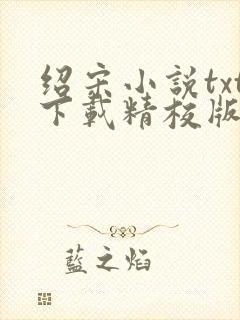 绍宋小説txt
下載精校版
藍之焰